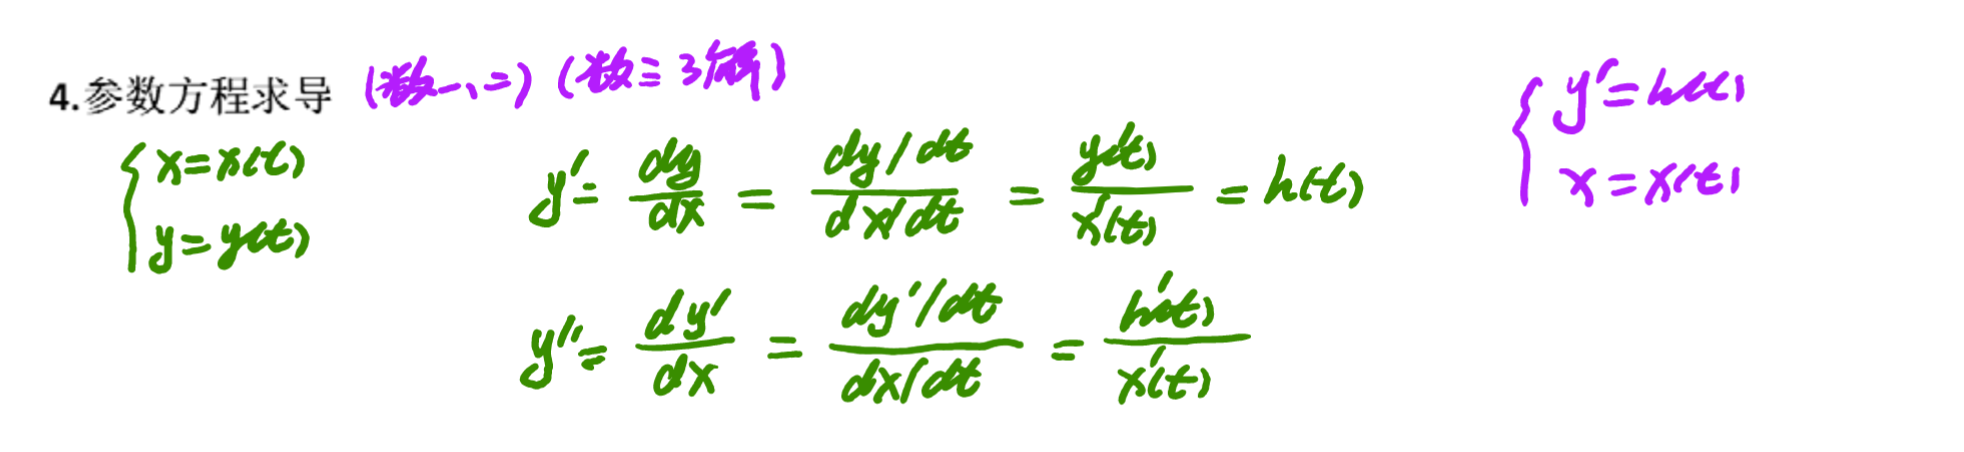 4.参数方程求导 (数一、二) (数三了解)
{ x=x(t)
y=y(t)
y'= dy/dx = (dy/dt)/(dx/dt) = y'(t)/x'(t) = h(t)
y''= dy'/dx = (dy'/dt)/(dx/dt) = h'(t)/x'(t)
{ y'=h(t)
x=x(t)